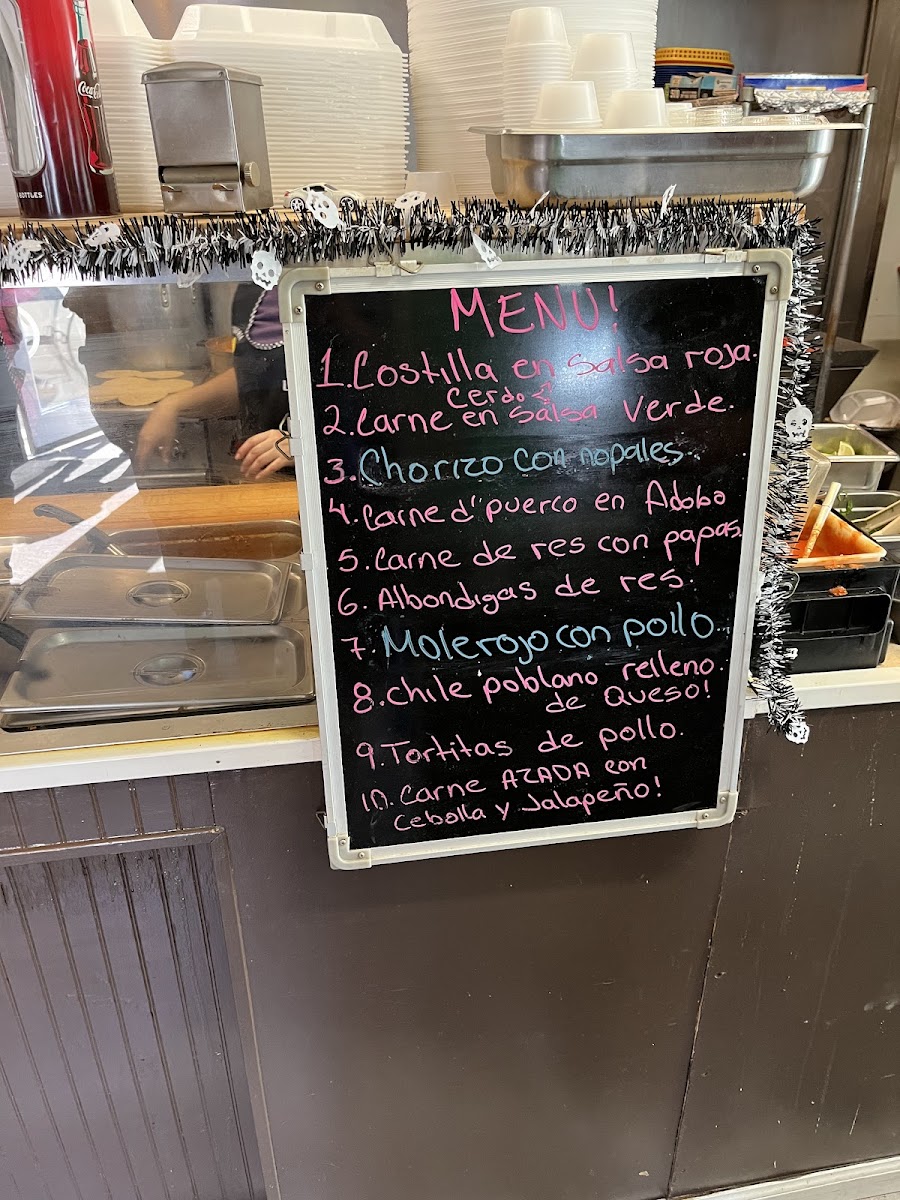 Coca-Cola
BOTTLES
MENU!
1. Costilla en salsa roja.
Cerdo
2. Carne en salsa verde.
3. Chorizo con nopales.
4. Carne d" puerco en Adobo
5. Carne de res con papas.
6. Albondigas de res.
7. Mole rojo con pollo.
8. chile poblano relleno
de Queso!
9. Tortitas de pollo.
10. Carne AZADA con
Cebolla y Jalapeño!